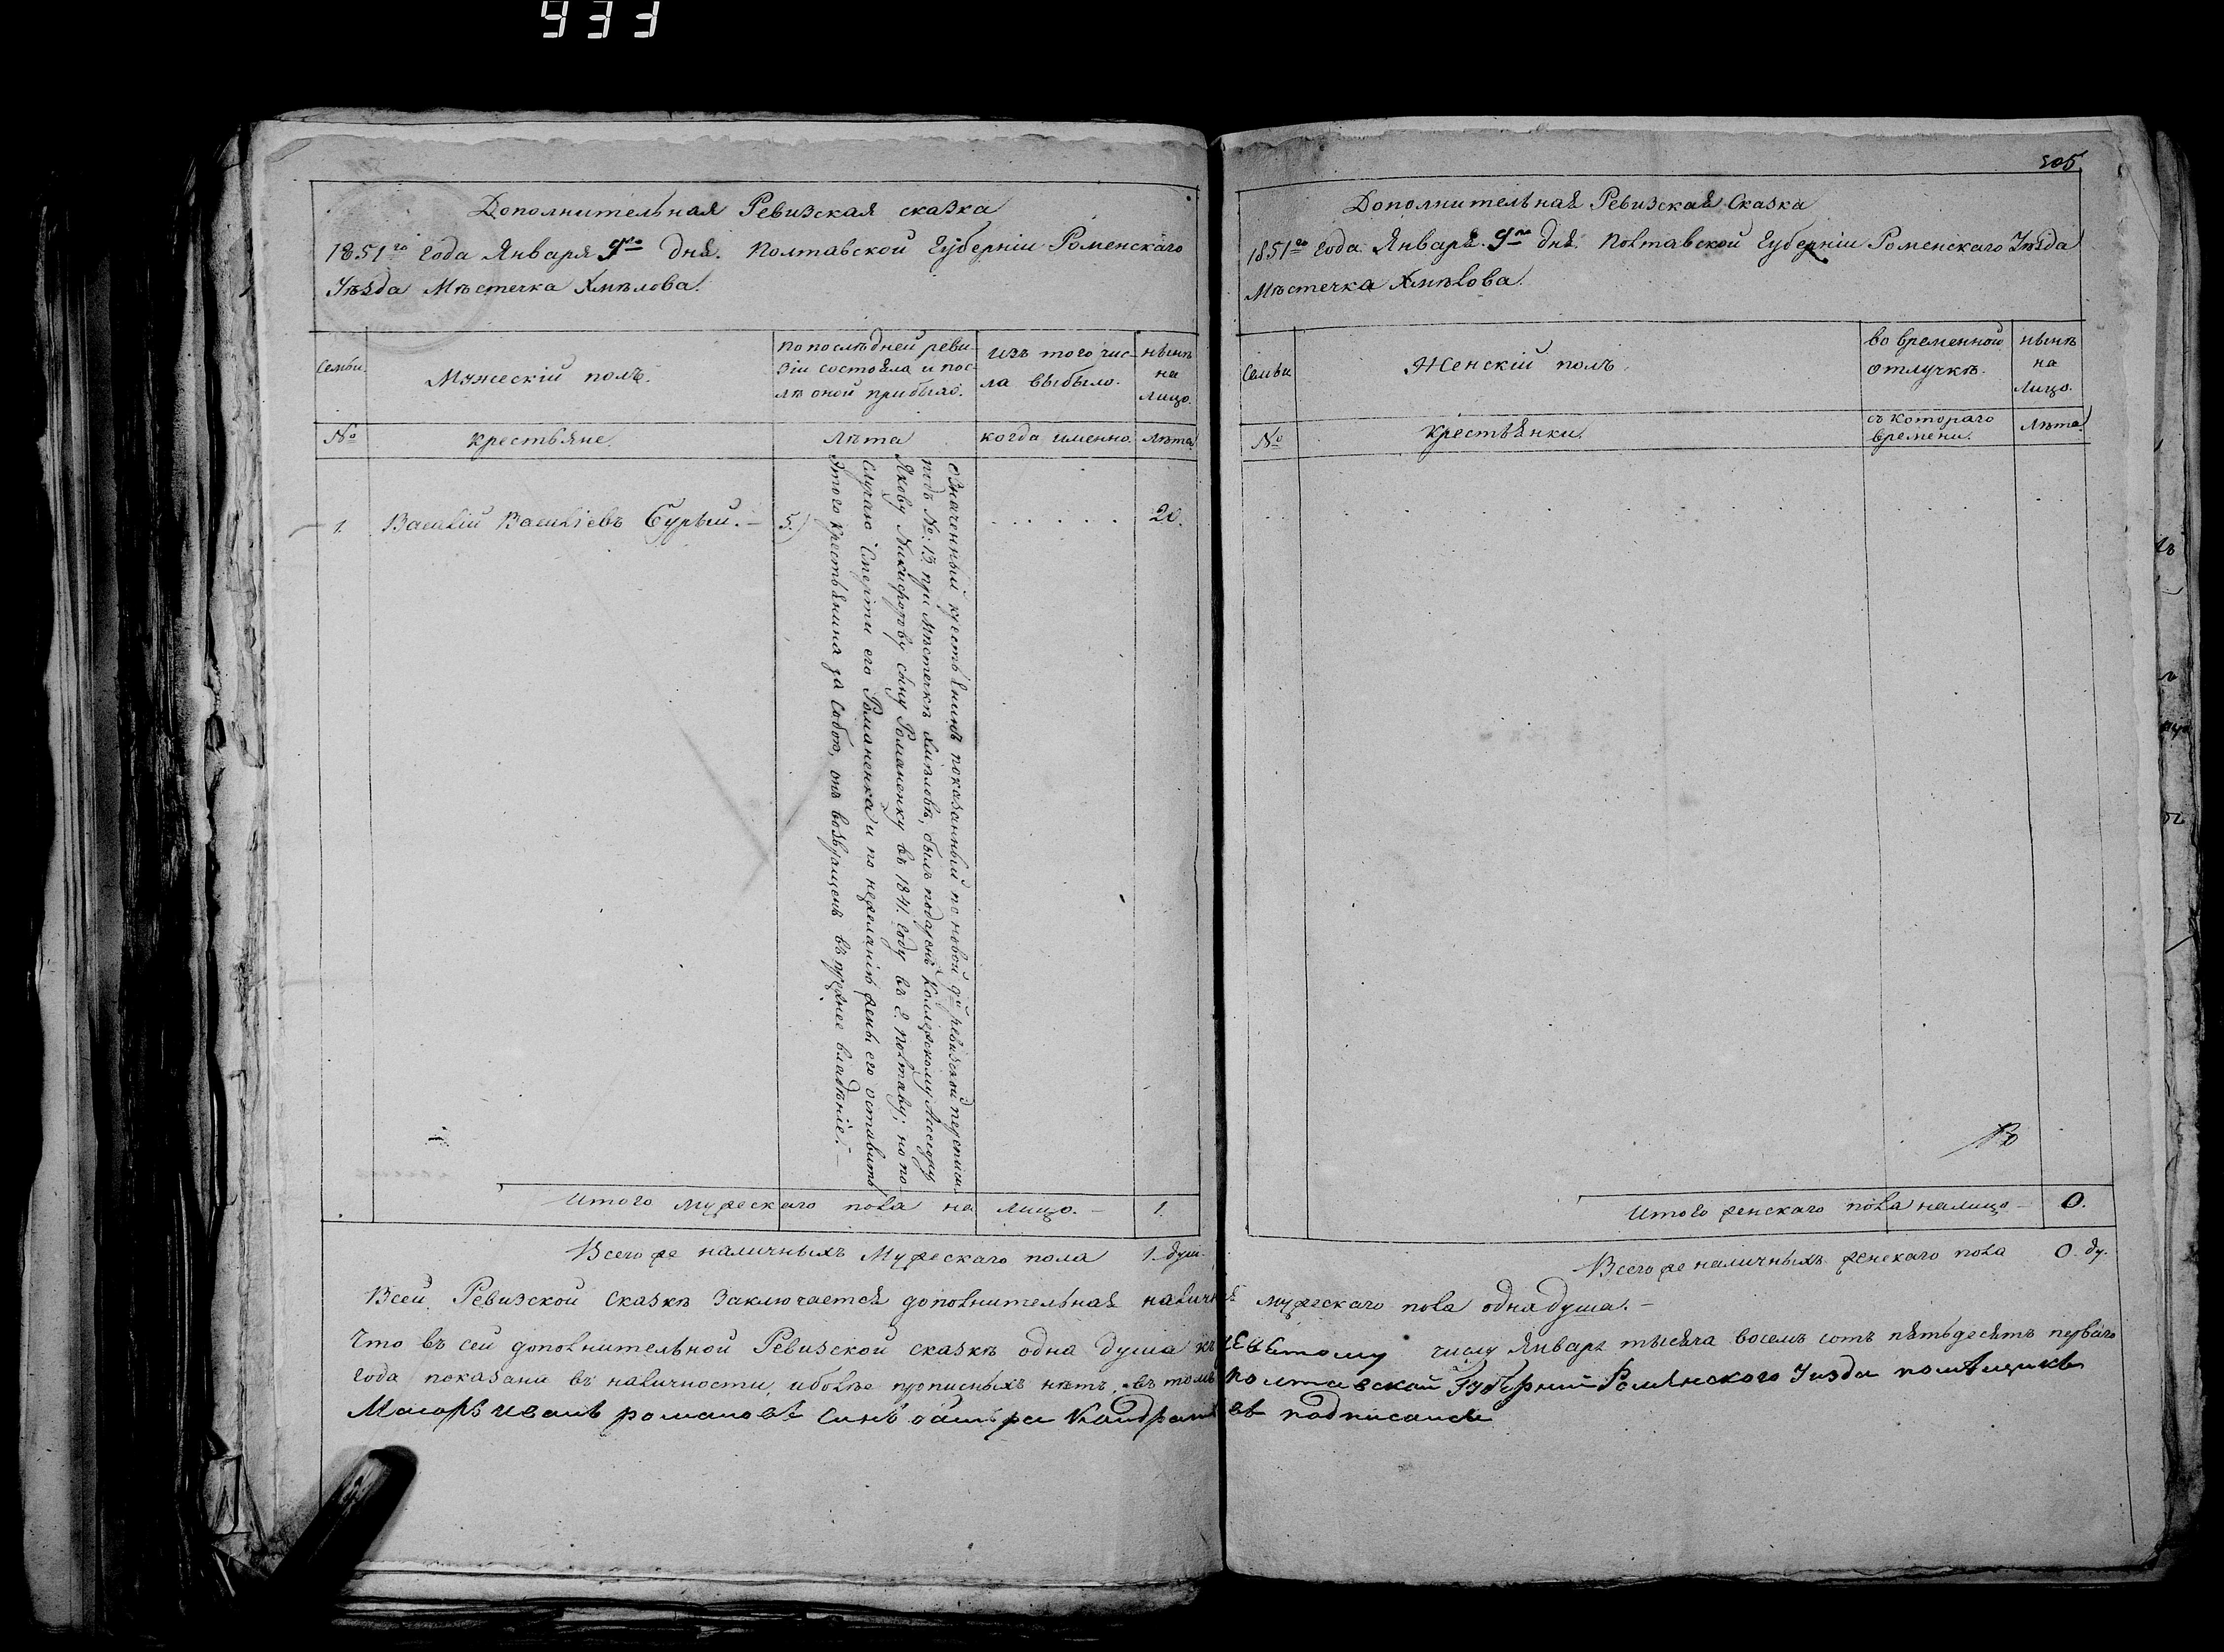 933
Дополнительная Ревизская сказка
1851го года Января 9го дня. Полтавской Губерніи Роменскаго
Уѣзда Мѣстечка Хмѣлова.
Семьи.
Мужескій полъ.
По послѣдней реви-
зіи состояла и пос-
лѣ оной прибыло.
Изъ того чис-
ла выбыло.
нынѣ
на
лицо.
№
Крестьяне.
Лѣта
когда именно.
Лѣта
1.
Василій Васильевъ Бурый. —
5.)
. . . . . .
20.
Означенный крестьянинъ показанный по новой 9й ревизской переписи
подъ №: 13. при Мѣстечкѣ Хмѣловѣ, былъ подаренъ Коллежскому Ассесору
Якову Никифорову сыну Романенку въ 1841. году въ г. Полтаву; но по
случаю Смерти его Романенка и по нежеланію жены его оставить
этого крестьянина за собою, онъ возвращенъ въ прежнее владѣніе. —
Итого мужескаго пола на лицо. — 1.
Всего же наличныхъ Мужескаго пола 1. душ.
205
Дополнительная Ревизская Сказка
1851го года Января 9го дня. Полтавской Губерніи Роменскаго Уѣзда
Мѣстечка Хмѣлова.
Семьи
Женскій полъ.
во временной
отлучкѣ.
нынѣ
на
Лицо.
№
Крестьянки.
съ котораго
времени.
Лѣта
Итого женскаго пола налицо — 0.
Всего же наличныхъ женскаго пола 0. ду.
Всей Ревизской Сказкѣ Заключается дополнительная мужескаго пола одна душа. —
Что въ сей дополнительной Ревизской сказкѣ одна душа числу Январь тысяча восемь сотъ пятьдесятъ перваго
года показани въ наличности, и болѣе прописныхъ нѣтъ, въ томъ Полтавской Губерніи Роменского Уизда помѣщикъ
Маиоръ Иванъ романовъ Синъ подписался